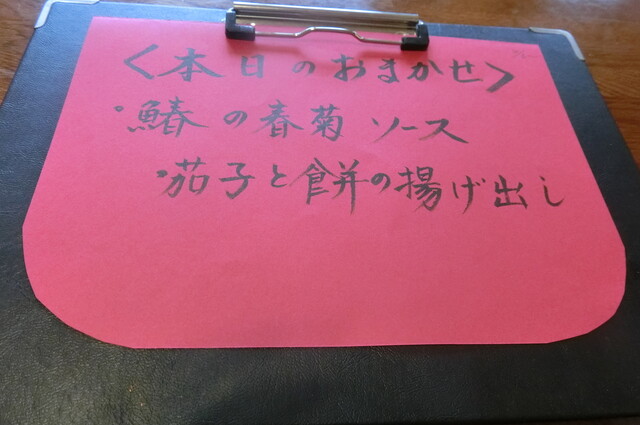 <本日のおまかせ>
・鰆の春菊ソース
・茄子と餅の揚げ出し